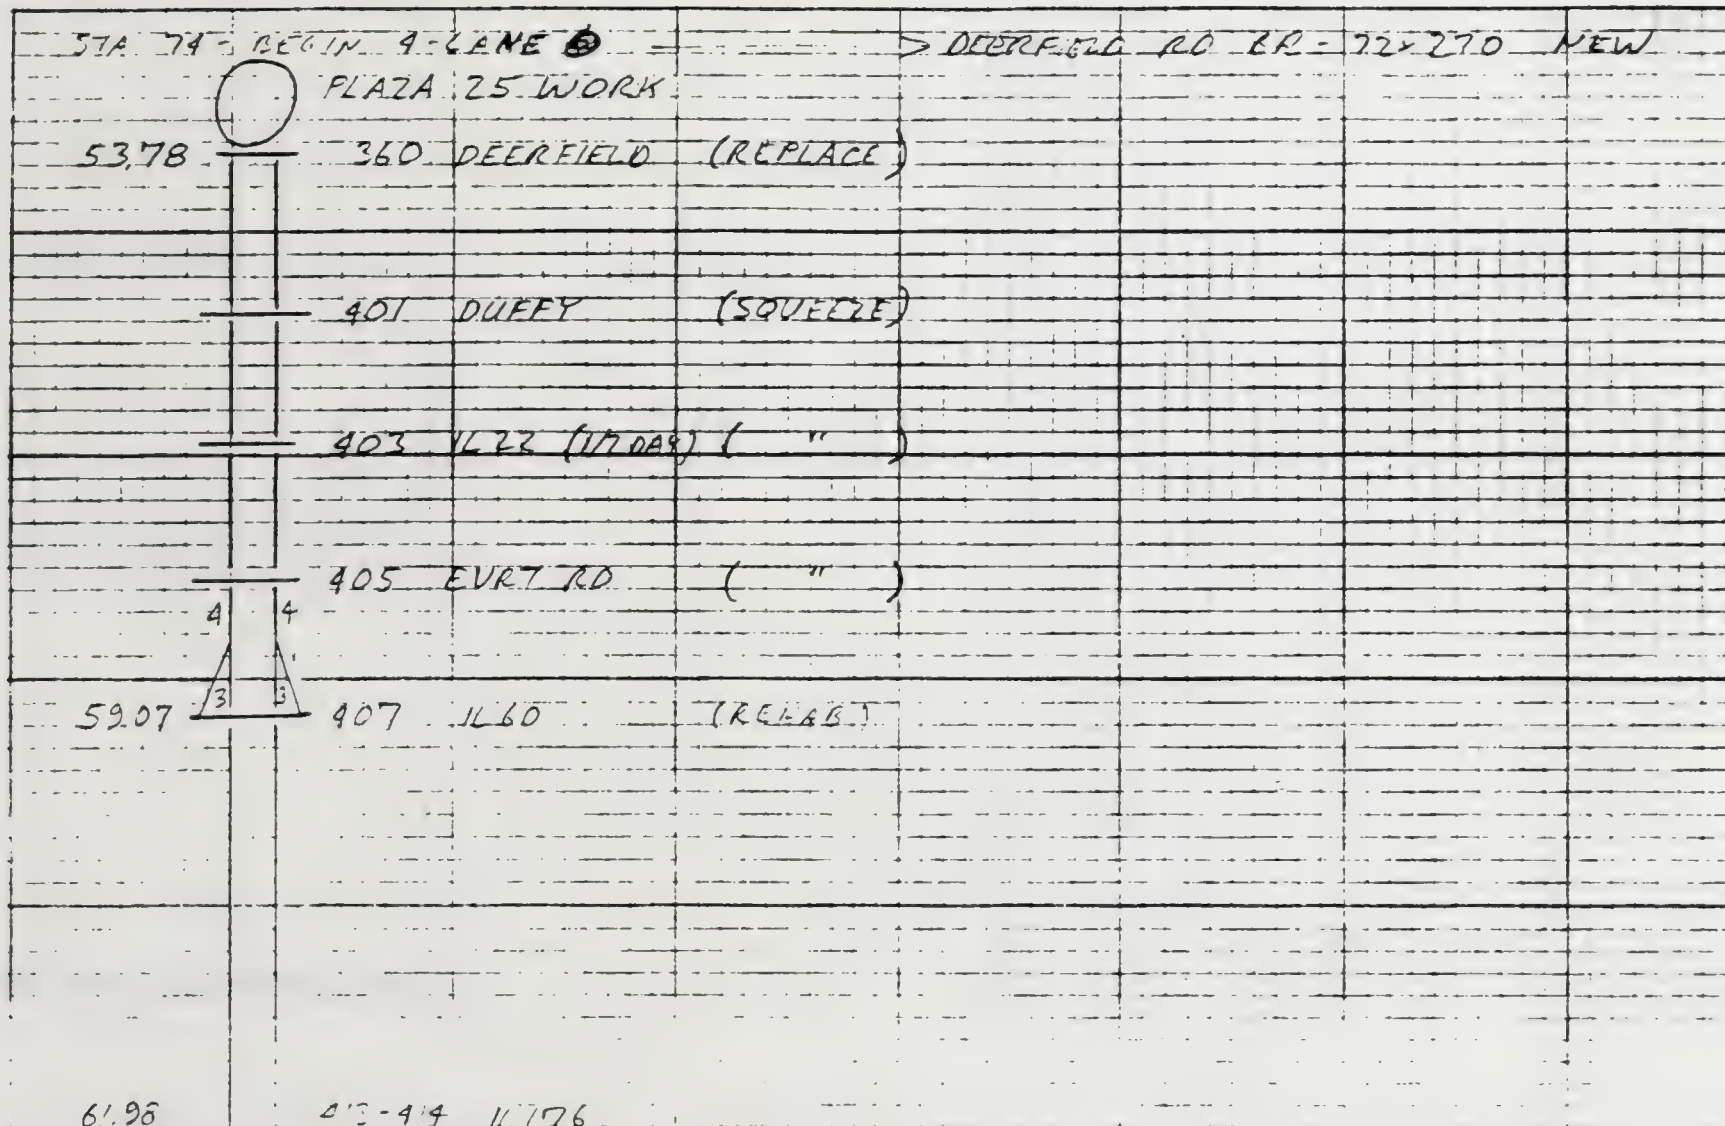 STA 74 - BEGIN 4-LANE > DEERFIELD RD BR - 72x270 NEW
PLAZA 25 WORK
53.78 360 DEERFIELD (REPLACE)
401 DUFFY (SQUEEZE)
403 IL22 ( " )
405 EVRT RD ( " )
4 4
3 3
59.07 407 IL60 (REHAB)
61.98 IL176